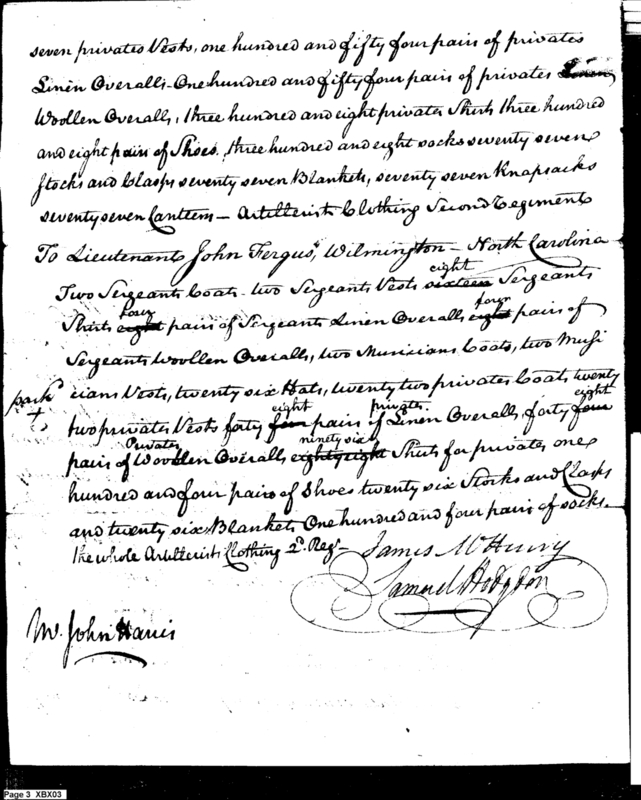 seven privates Vests, one hundred and fifty four pairs of privates
Linen Overalls - One hundred and fifty four pairs of privates Linen
Woollen Overalls, three hundred and eight privates Shirts three hundred
and eight pairs of Shoes, three hundred and eight socks seventy seven
Stocks and Clasps seventy seven Blankets, seventy seven Knapsacks
seventy seven Canteens - Artillerists Clothing Second Regiment
To Lieutenant John Fergus, Wilmington - North Carolina
Two Sergeants Coats - two Sergeants Vests sixteen eight Sergeants
Shirts eight four pairs of Sergeants Linen Overalls eight four pairs of
Sergeants Woollen Overalls, two Musicians Coats, two Musi
cians Vests, twenty six Hats, twenty two privates Coats twenty
pack +
two privates Vests forty four eight pairs of privates Linen Overalls, forty four eight
pairs of Privates Woollen Overalls eighty eight ninety six Shirts for privates one
hundred and four pairs of Shoes twenty six Stocks and Clasps
and twenty six Blankets One hundred and four pairs of socks.
the whole Artillerists Clothing 2d. Regt -
James McHenry
Samuel Hodgdon
Mr. John Harris
Page 3 XBX03